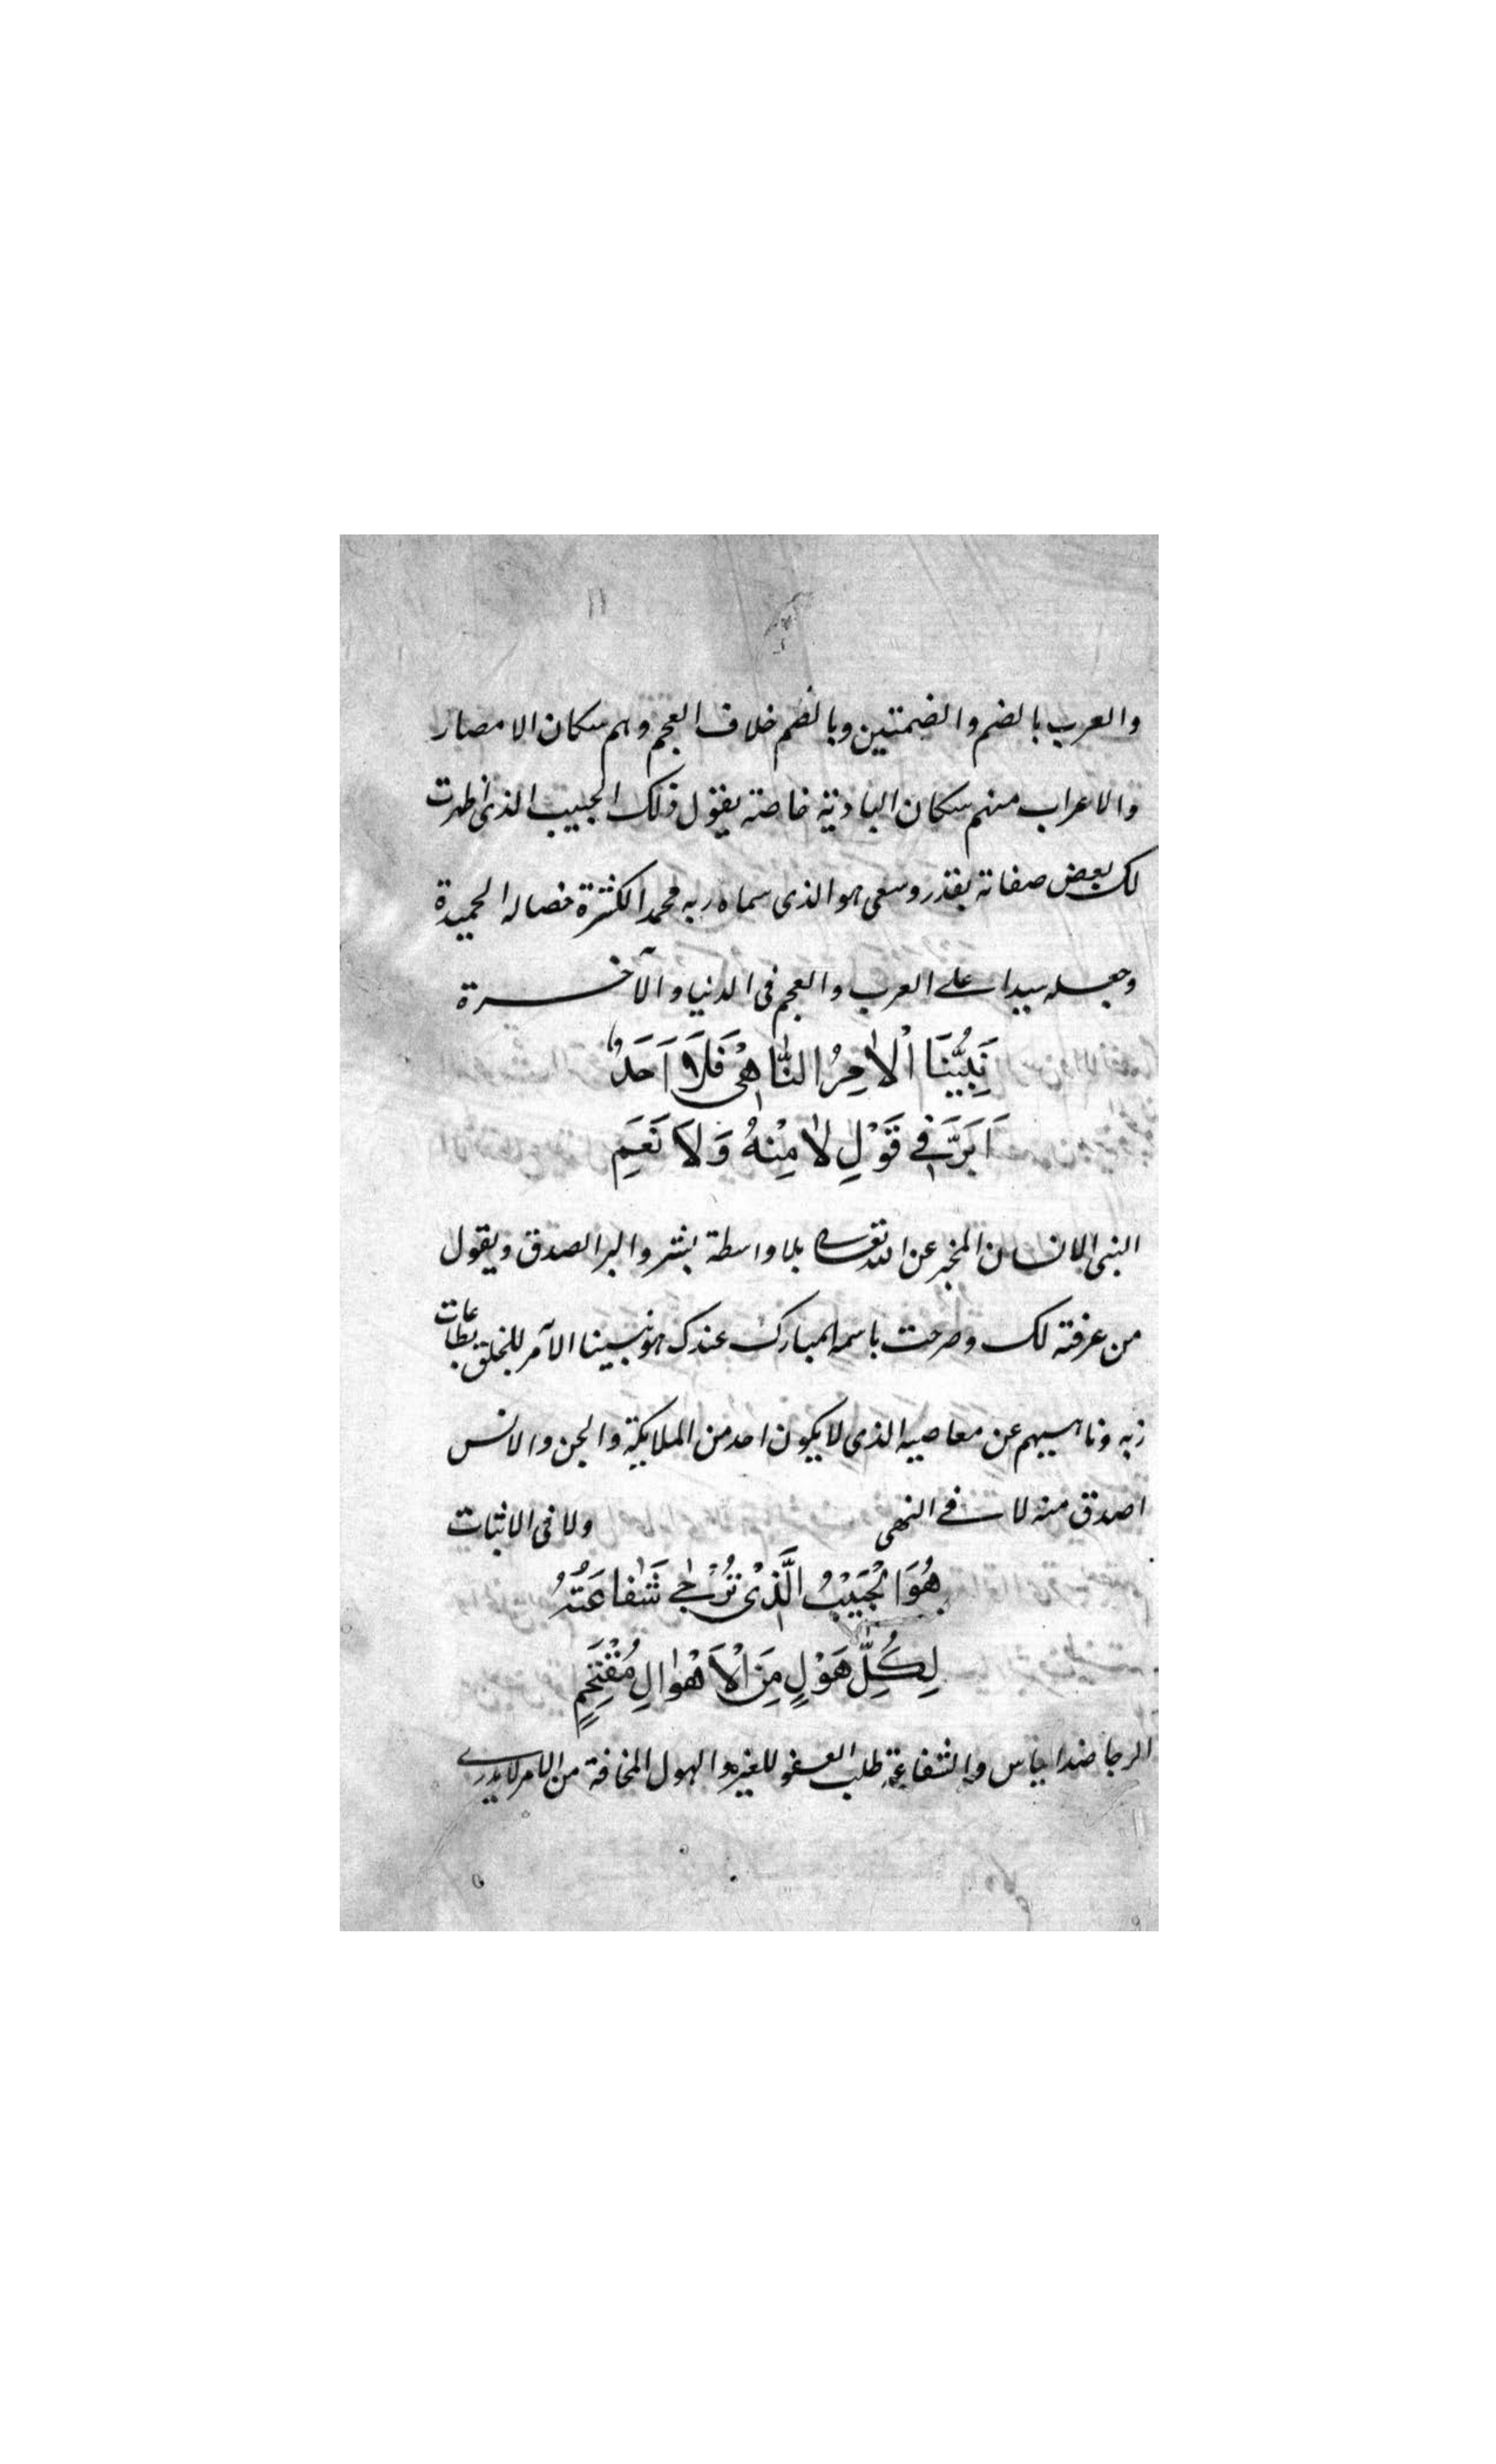 والعرب بالضم والضمتين وبالضم خلاف العجم وهم سكان الامصار
والاعراب منهم سكان البادية خاصة يقول ذلك الحبيب الذى اظهرت
لك بعض صفاته بقدر وسعى هو الذى سماه ربه محمدا لكثرة خصاله الحميدة
وجعله سيدا على العرب والعجم فى الدنيا والآخرة
نَبِيُّنَا اْلاٰمِرُ النَّاهِىْ فَلَا اَحَدٌ
اَبَرَّ فِے قَوْلِ لَا مِنْهُ وَلَا نَعَمِ
النبى الانسان المخبر عن الله تعالى بلا واسطة بشر والبر الصدق ويقول
من عرفته لك وصرحت باسمه المبارك عندك هو نبينا الآمر للخلق بطاعات
ربه وناهيهم عن معاصيه الذى لا يكون احد من الملايكة والجن والانس
اصدق منه لا فے النهى ولا فى الاثبات
هُوَ الْحَبِيْبُ الَّذِىْ تُرْجٰى شَفَاعَتُهُ
لِكُلِّ هَوْلٍ مِنَ الْاَهْوَالِ مُقْتَحِمٍ
الرجا ضد الياس والشفاعة طلب العفو للغير والهول المخافة من الامر لا يدرے